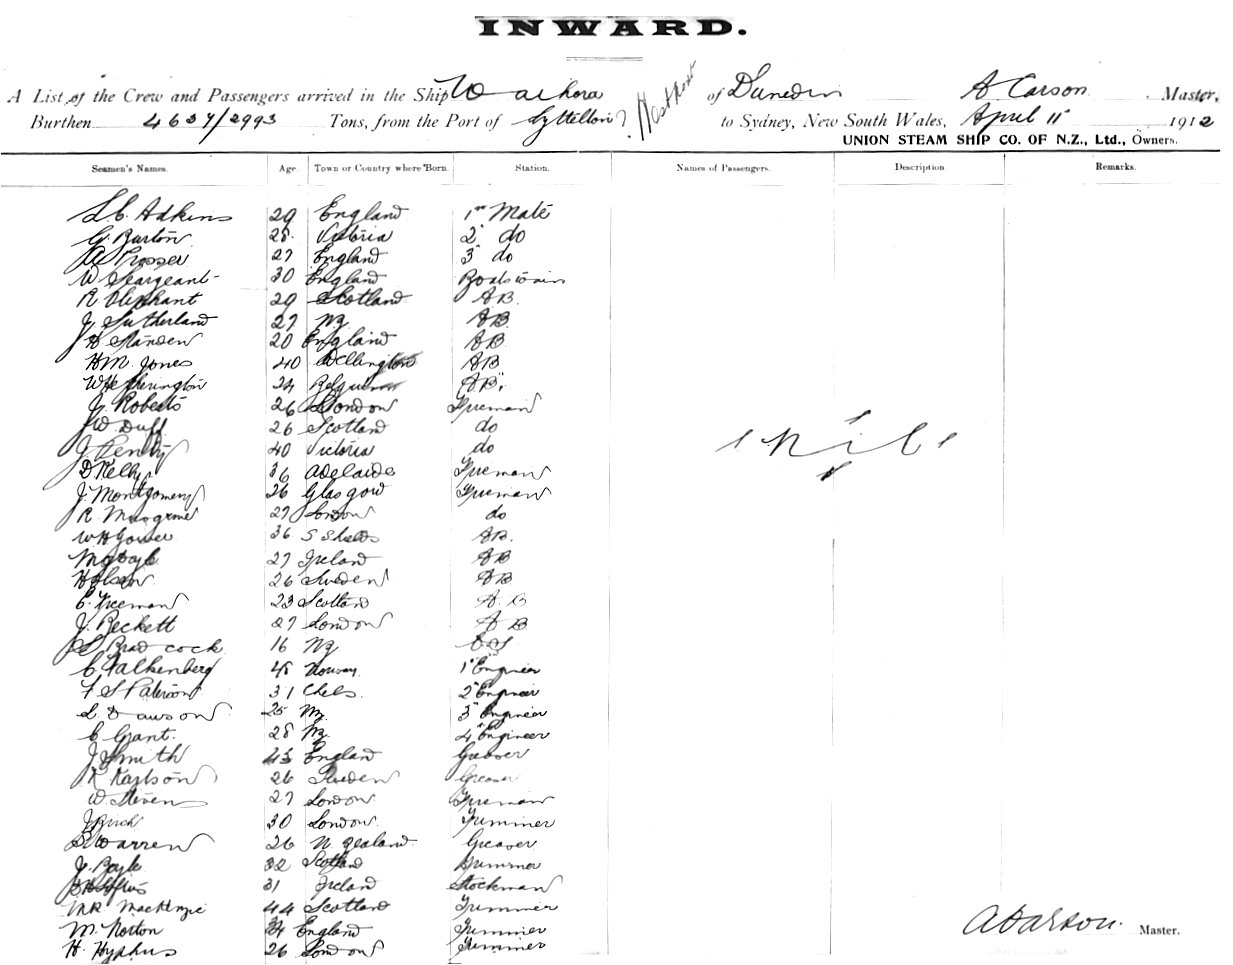 INWARD.
A List of the Crew and Passengers arrived in the Ship Waihora of Dunedin A Carson Master,
Burthen 4637/2993 Tons, from the Port of Lyttelton to Sydney, New South Wales, April 11 1912
UNION STEAM SHIP CO. OF N.Z., Ltd., Owners.
Seamen's Names. Age. Town or Country where Born. Station. Names of Passengers. Description. Remarks.
Adkins 29 England 1st Mate
G. Burton 28 Victoria 2 do
Prosser 27 England 3 do
W Seargeant 30 England Boatswain
R Oliphant 29 Scotland AB.
J. Sutherland 27 NZ AB
H Standen 20 England AB
HM Jones 40 Wellington AB
W Hetherington 24 AB
J. Roberts 26 London Fireman
JW Duff 26 Scotland do
J 40 Victoria do
nil
D Kelly 36 Adelaide Fireman
J. Montgomery 26 Glasgow Fireman
R Musgrove 27 London do
WH Gower 36 S Shields AB.
M Doyle 27 Ireland AB
H Olsen 26 Sweden AB
C. Freeman 23 Scotland A B
J. Beckett 27 London A B
Bradcock 16 NZ
C Falkenberg 48 Norway 1 Engineer
F S Paterson 31 2 Engineer
L Dawson 25 NZ 3 Engineer
C Grant. 28 NZ 4 Engineer
J Smith 43 England Greaser
R Karlson 26 Sweden Greaser
W Steven 27 London Fireman
J Birch 30 London Trimmer
Warren 26 N Zealand Greaser
J. Boyle 32 Scotland Trimmer
Loftus 31 Ireland Stockman
MacKenzie 44 Scotland Trimmer
M. Norton 34 England Trimmer
H. Hyphus 26 London Trimmer
A Carson. Master.